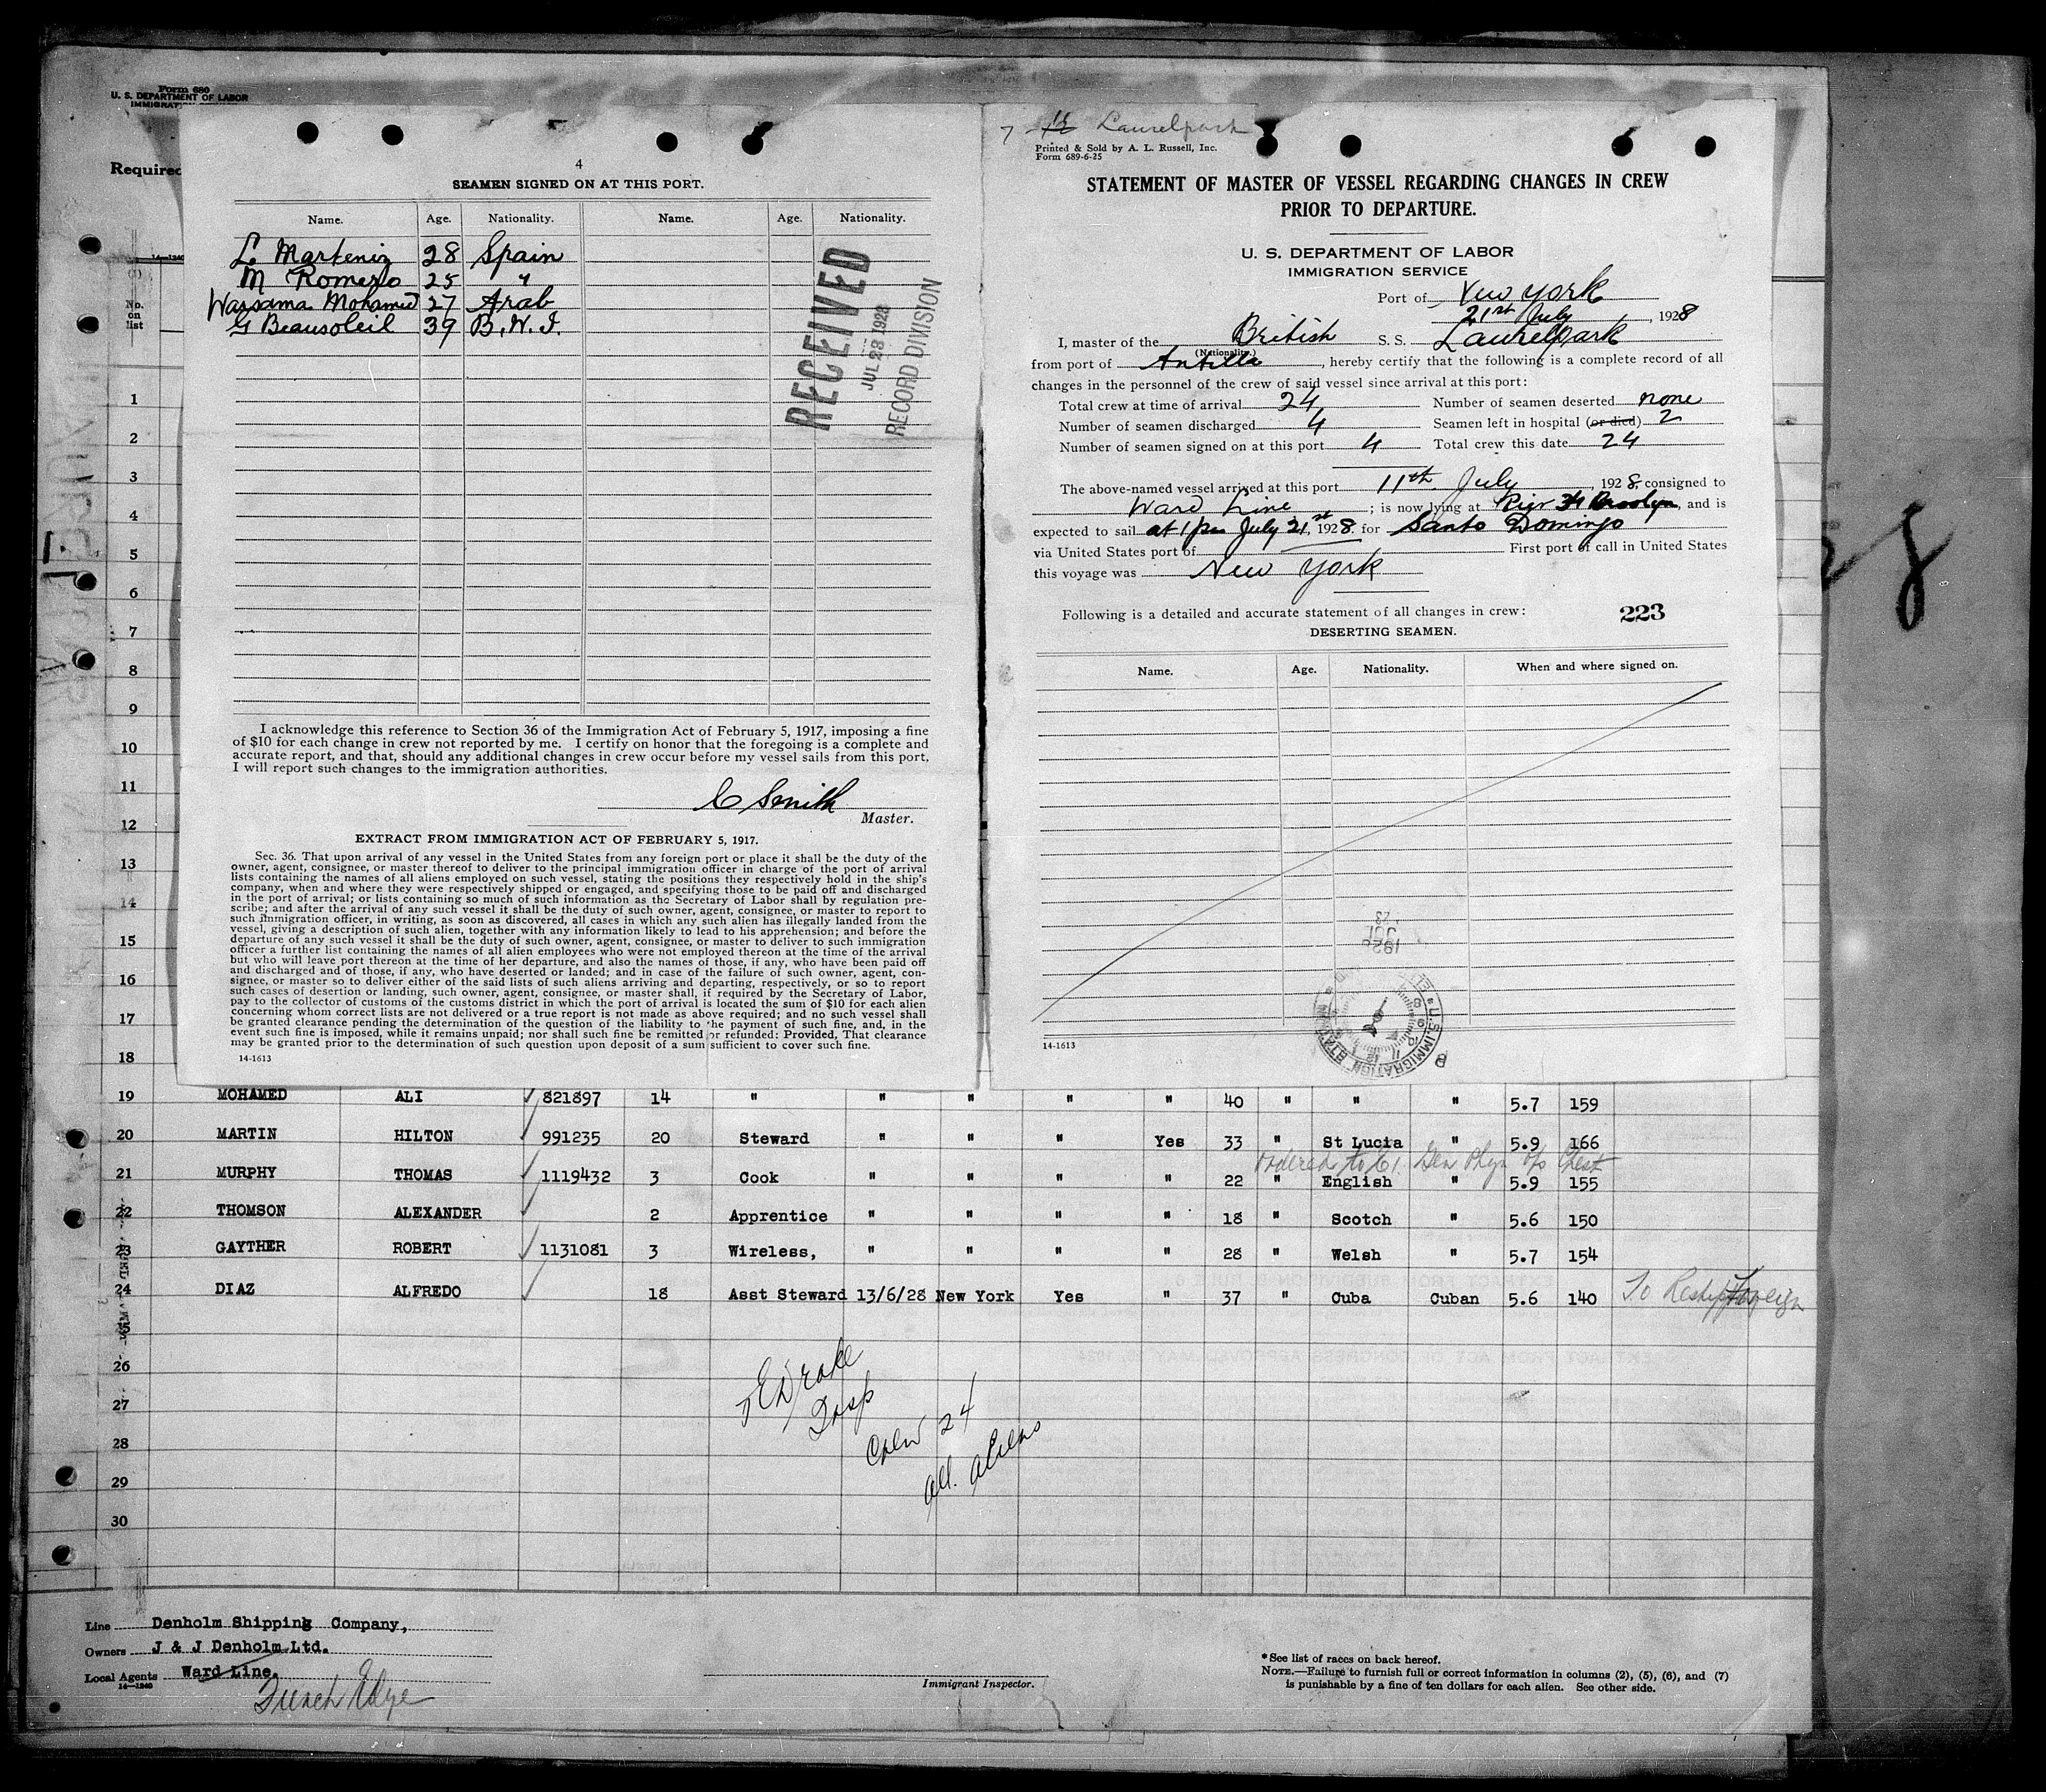 Form 680
U. S. DEPARTMENT OF LABOR
Required
No.
on
list
4
SEAMEN SIGNED ON AT THIS PORT.
Name. Age. Nationality. Name. Age. Nationality.
L Marteniz 28 Spain
M Romero 25 "
Warsama Mohamed 27 Arab
G Beausoleil 39 B.W.I.
RECEIVED
JUL 23 1928
RECORD DIVISION
I acknowledge this reference to Section 36 of the Immigration Act of February 5, 1917, imposing a fine
of $10 for each change in crew not reported by me. I certify on honor that the foregoing is a complete and
accurate report, and that, should any additional changes in crew occur before my vessel sails from this port,
I will report such changes to the immigration authorities.
C Smith
Master.
EXTRACT FROM IMMIGRATION ACT OF FEBRUARY 5, 1917.
Sec. 36. That upon arrival of any vessel in the United States from any foreign port or place it shall be the duty of the
owner, agent, consignee, or master thereof to deliver to the principal immigration officer in charge of the port of arrival
lists containing the names of all aliens employed on such vessel, stating the positions they respectively hold in the ship's
company, when and where they were respectively shipped or engaged, and specifying those to be paid off and discharged
in the port of arrival; or lists containing so much of such information as the Secretary of Labor shall by regulation pre-
scribe; and after the arrival of any such vessel it shall be the duty of such owner, agent, consignee, or master to report to
such immigration officer, in writing, as soon as discovered, all cases in which any such alien has illegally landed from the
vessel, giving a description of such alien, together with any information likely to lead to his apprehension; and before the
departure of any such vessel it shall be the duty of such owner, agent, consignee, or master to deliver to such immigration
officer a further list containing the names of all alien employees who were not employed thereon at the time of the arrival
but who will leave port thereon at the time of her departure, and also the names of those, if any, who have been paid off
and discharged and of those, if any, who have deserted or landed; and in case of the failure of such owner, agent, con-
signee, or master so to deliver either of the said lists of such aliens arriving and departing, respectively, or so to report
such cases of desertion or landing, such owner, agent, consignee, or master shall, if required by the Secretary of Labor,
pay to the collector of customs of the customs district in which the port of arrival is located the sum of $10 for each alien
concerning whom correct lists are not delivered or a true report is not made as above required; and no such vessel shall
be granted clearance pending the determination of the question of the liability to the payment of such fine, and, in the
event such fine is imposed, while it remains unpaid; nor shall such fine be remitted or refunded: Provided, That clearance
may be granted prior to the determination of such question upon deposit of a sum sufficient to cover such fine.
14-1613
7 Laurelpark
Printed & Sold by A. L. Russell, Inc.
Form 689-6-25
STATEMENT OF MASTER OF VESSEL REGARDING CHANGES IN CREW
PRIOR TO DEPARTURE.
U. S. DEPARTMENT OF LABOR
IMMIGRATION SERVICE
Port of New York
21st July, 1928
I, master of the British S. S. Laurelpark
(Nationality.)
from port of Antilla, hereby certify that the following is a complete record of all
changes in the personnel of the crew of said vessel since arrival at this port:
Total crew at time of arrival 24 Number of seamen deserted none
Number of seamen discharged 4 Seamen left in hospital (or died) 2
Number of seamen signed on at this port 4 Total crew this date 24
The above-named vessel arrived at this port 11th July, 1928, consigned to
Ward Line; is now lying at Pier 34 Brooklyn, and is
expected to sail at 1 pm July 21st, 1928 for Santo Domingo
via United States port of First port of call in United States
this voyage was New York
Following is a detailed and accurate statement of all changes in crew: 223
DESERTING SEAMEN.
Name. Age. Nationality. When and where signed on.
1928
JUL
23
U.S. IMMIGRATION
14-1613
1
2
3
4
5
6
7
8
9
10
11
12
13
14
15
16
17
18
19 MOHAMED ALI 821897 14 " " " " " 40 " " " 5.7 159
20 MARTIN HILTON 991235 20 Steward " " " Yes 33 " St Lucia " 5.9 166
Ordered to
21 MURPHY THOMAS 1119432 3 Cook " " " " 22 " English " 5.9 155
22 THOMSON ALEXANDER 2 Apprentice " " " " 18 " Scotch " 5.6 150
23 GAYTHER ROBERT 1131081 3 Wireless, " " " " 28 " Welsh " 5.7 154
24 DIAZ ALFREDO 18 Asst Steward 13/6/28 New York Yes " 37 " Cuba Cuban 5.6 140 To Reship Foreign
26
27
28
29
30
Drake
Insp
Crew 24
all aliens
Line Denholm Shipping Company,
Owners J & J Denholm Ltd.
Local Agents Ward Line.
14-1240
Funch Edye
Immigrant Inspector.
* See list of races on back hereof.
NOTE.—Failure to furnish full or correct information in columns (2), (5), (6), and (7)
is punishable by a fine of ten dollars for each alien. See other side.